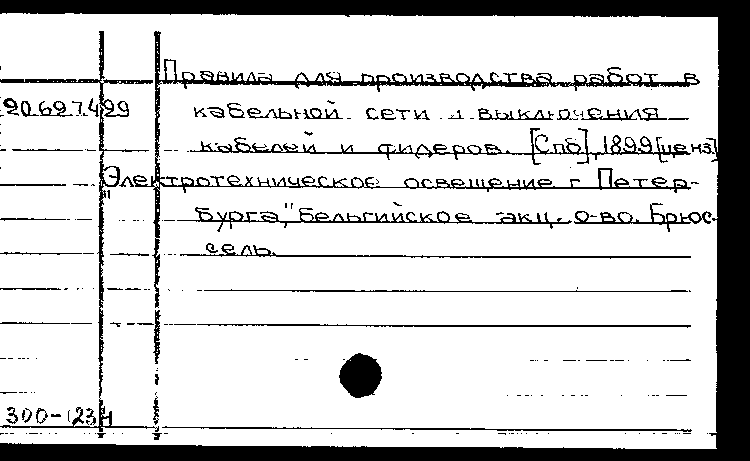 Правила для производства работ в
90.697.499 кабельной сети и выключения
кабелей и фидеров. [Спб], 1899 [ценз]
„Электротехническое освещение г Петер-
бурга," Бельгийское акц. о-во. Брюс-
сель.
300-1234